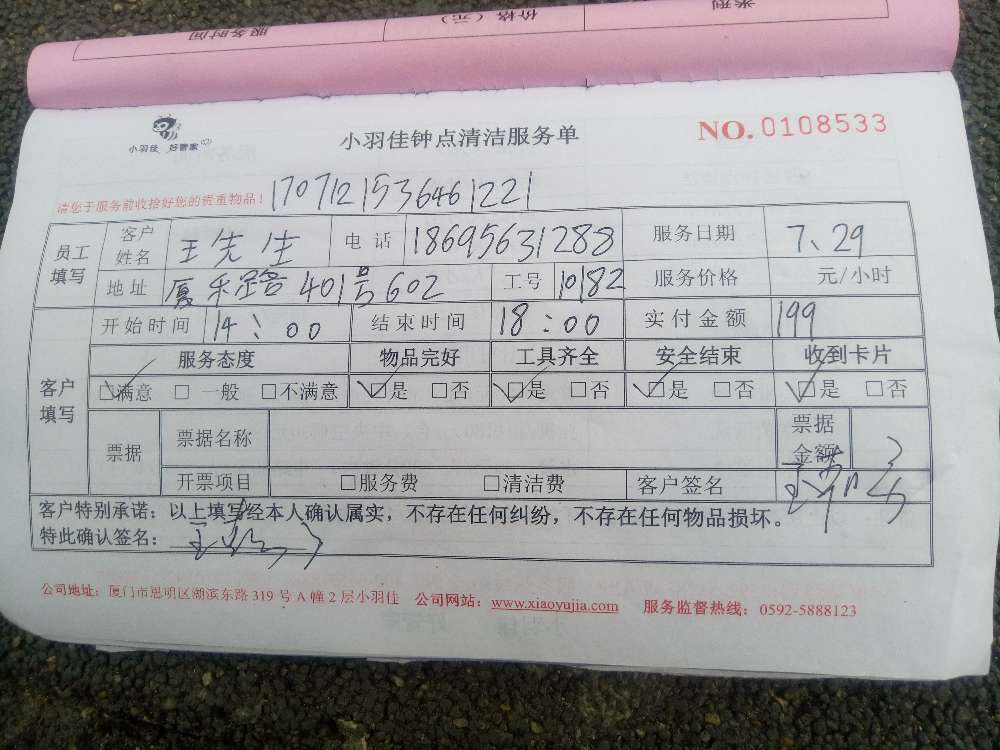 服务时间 价格（元） 类型
小羽佳 好管家
小羽佳钟点清洁服务单
NO.0108533
请您于服务前收拾好您的贵重物品！ 1707121536461221
员工填写 客户姓名 王先生 电话 18695631288 服务日期 7、29
地址 厦禾路401号602 工号 10182 服务价格 元/小时
客户填写 开始时间 14：00 结束时间 18：00 实付金额 199
服务态度 物品完好 工具齐全 安全结束 收到卡片
☑满意 □一般 □不满意 ☑是 □否 ☑是 □否 ☑是 □否 ☑是 □否
票据 票据名称 票据金额
开票项目 □服务费 □清洁费 客户签名
客户特别承诺：以上填写经本人确认属实，不存在任何纠纷，不存在任何物品损坏。
特此确认签名：
公司地址：厦门市思明区湖滨东路 319 号 A 幢 2 层小羽佳 公司网站：www.xiaoyujia.com 服务监督热线：0592-5888123